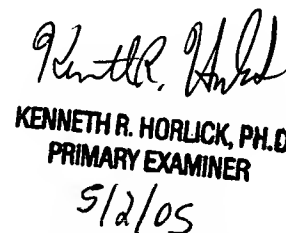 Kenneth R. Horlick
KENNETH R. HORLICK, PH.D
PRIMARY EXAMINER
5/2/05